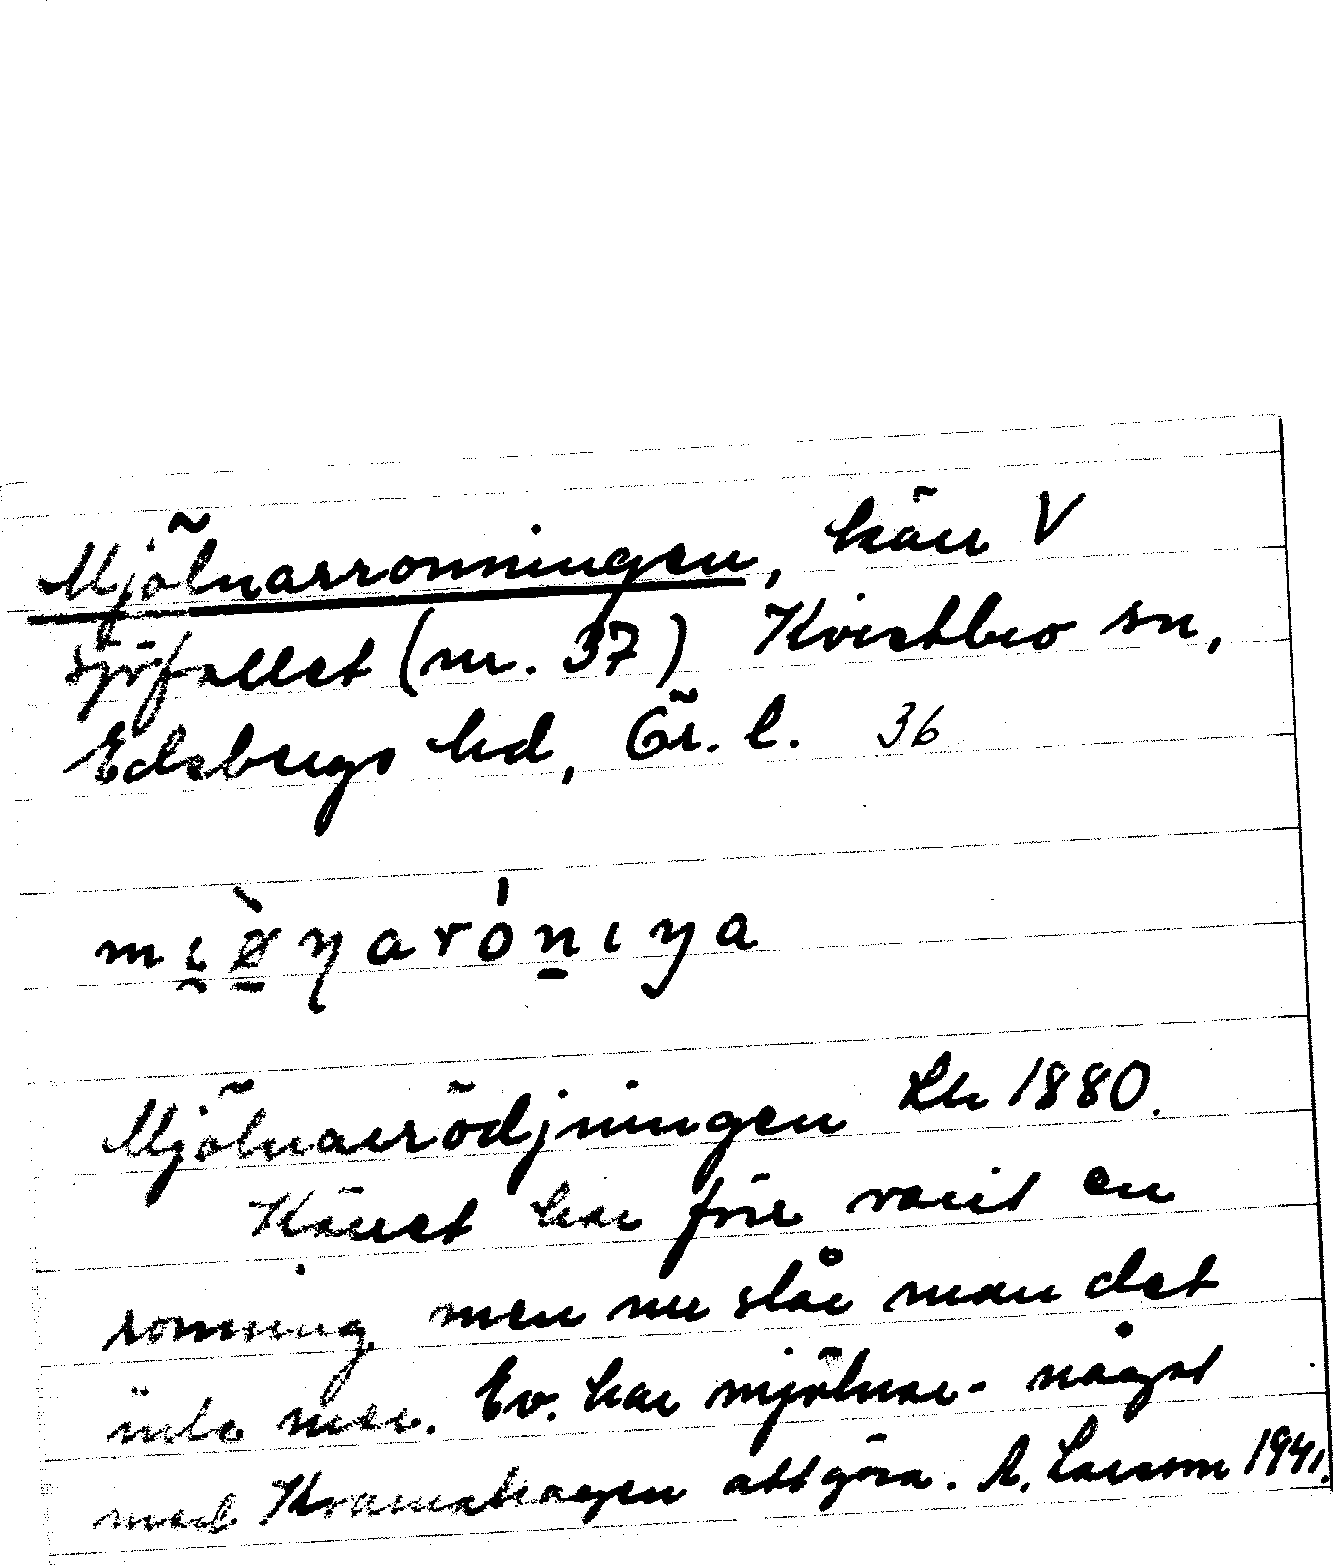 Mjölnarronningen, kärr V
Sjöfallet (nr. 37) Kvistbro sn,
Edsbergs hd, Ör. l. 36
Mjölnarrödjningen Lk 1880.
Kärret har förr varit en
ronning men nu slår man det
inte mer. Ev. har mjölnar- något
med Kvarnahagen att göra. A. Larsson 1941.